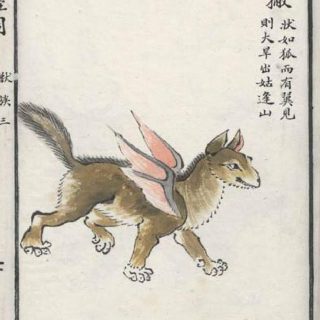 狀如狐而有翼見
則大旱出姑逢山
獸族三